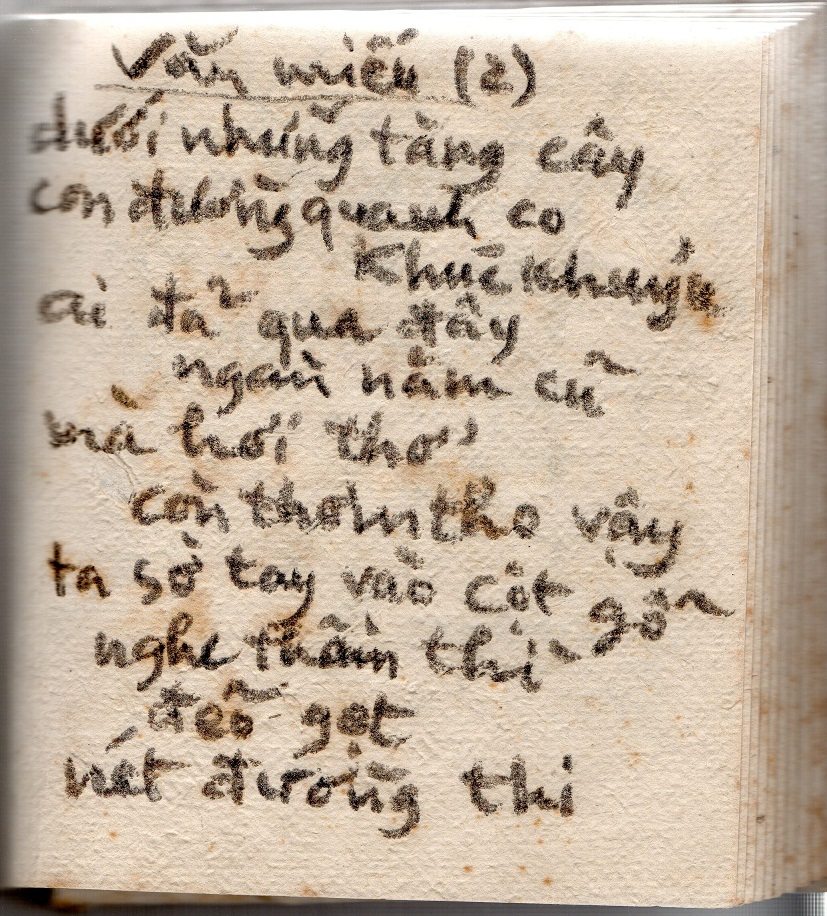 Văn miếu (2)
dưới những tầng cây
con đường quanh co
khúc khuỷu
ai đã qua đây
ngàn năm cũ
mà hơi thở
còn thơm tho vậy
ta sờ tay vào cột gỗ
nghe thầm thì
đẽo gọt
nét đường thi